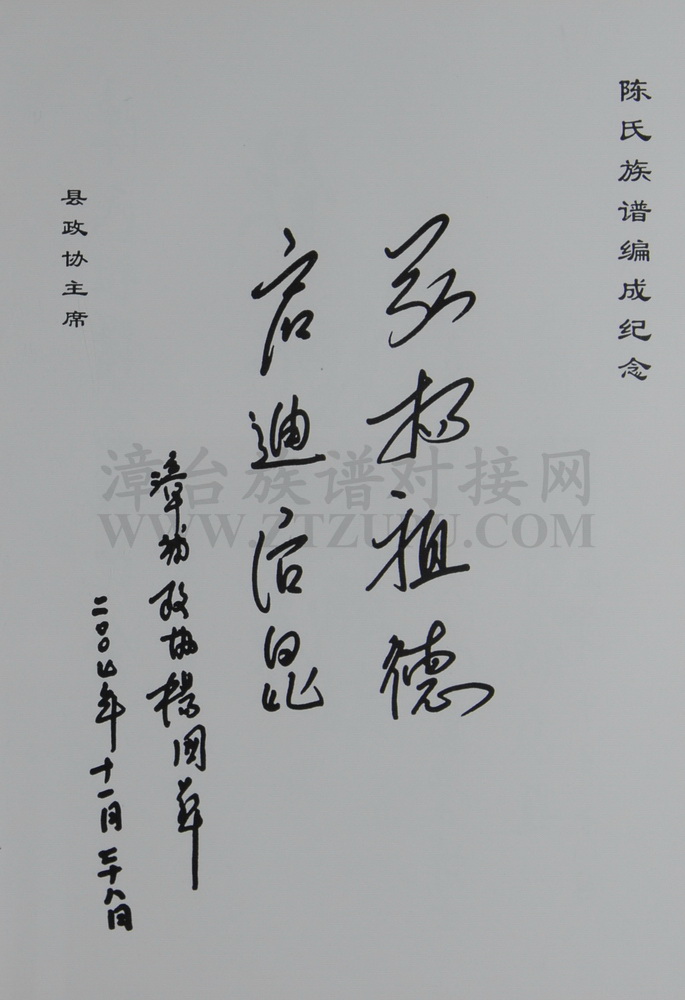 陈氏族谱编成纪念
植德
启迪后昆
漳浦政协杨国
二〇〇七年十一月二十八日
县政协主席
漳台族谱对接网
WWW.ZTZUPU.COM